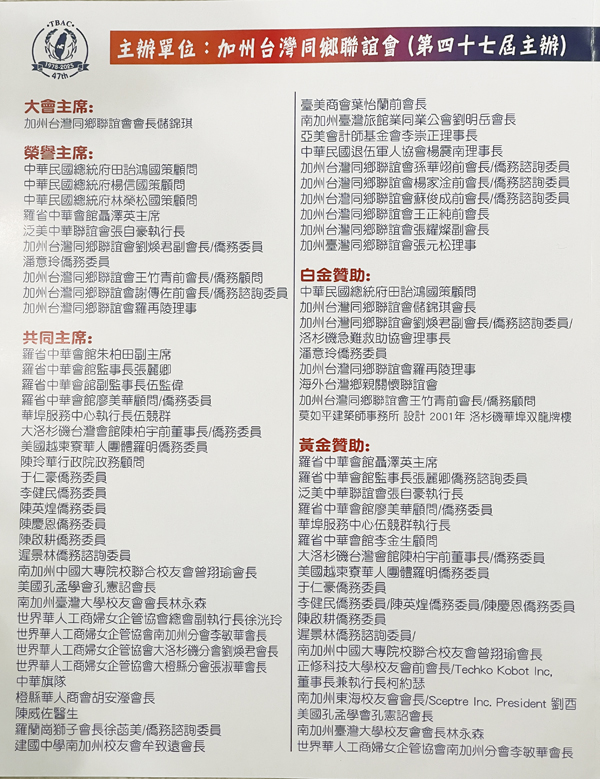 TBAC
1978-2025
47th
主辦單位：加州台灣同鄉聯誼會（第四十七屆主辦）
大會主席：
加州台灣同鄉聯誼會會長儲錦琪
榮譽主席：
中華民國總統府田詒鴻國策顧問
中華民國總統府楊信國策顧問
中華民國總統府林榮松國策顧問
羅省中華會館聶澤英主席
泛美中華聯誼會張自豪執行長
加州台灣同鄉聯誼會劉煥君副會長/僑務委員
潘意玲僑務委員
加州台灣同鄉聯誼會王竹青前會長/僑務顧問
加州台灣同鄉聯誼會謝傳佐前會長/僑務諮詢委員
加州台灣同鄉聯誼會羅再陵理事
共同主席：
羅省中華會館朱柏田副主席
羅省中華會館監事長張麗卿
羅省中華會館副監事長伍監偉
羅省中華會館廖美華顧問/僑務委員
華埠服務中心執行長伍競群
大洛杉磯台灣會館陳柏宇前董事長/僑務委員
美國越柬寮華人團體羅明僑務委員
陳玲華行政院政務顧問
于仁豪僑務委員
李健民僑務委員
陳英煌僑務委員
陳慶恩僑務委員
陳啟耕僑務委員
遲景林僑務諮詢委員
南加州中國大專院校聯合校友會曾翔瑜會長
美國孔孟學會孔憲詔會長
南加州臺灣大學校友會會長林永森
世界華人工商婦女企管協會總會副執行長徐洸玲
世界華人工商婦女企管協會南加州分會李敏華會長
世界華人工商婦女企管協會大洛杉磯分會劉煥君會長
世界華人工商婦女企管協會大橙縣分會張淑華會長
中華旗隊
橙縣華人商會胡安瀅會長
陳威佐醫生
羅蘭崗獅子會長徐茵美/僑務諮詢委員
建國中學南加州校友會牟致遠會長
臺美商會葉怡蘭前會長
南加州臺灣旅館業同業公會劉明岳會長
亞美會計師基金會李崇正理事長
中華民國退伍軍人協會楊震南理事長
加州台灣同鄉聯誼會孫華翊前會長/僑務諮詢委員
加州台灣同鄉聯誼會楊家淦前會長/僑務委員
加州台灣同鄉聯誼會蘇俊成前會長/僑務諮詢委員
加州台灣同鄉聯誼會王正純前會長
加州台灣同鄉聯誼會張耀燦副會長
加州臺灣同鄉聯誼會張元松理事
白金贊助：
中華民國總統府田詒鴻國策顧問
加州台灣同鄉聯誼會儲錦琪會長
加州台灣同鄉聯誼會劉煥君副會長/僑務諮詢委員/
洛杉磯急難救助協會理事長
潘意玲僑務委員
加州台灣同鄉聯誼會羅再陵理事
海外台灣鄉親關懷聯誼會
加州台灣同鄉聯誼會王竹青前會長/僑務顧問
莫如平建築師事務所 設計 2001年 洛杉磯華埠双龍牌樓
黃金贊助：
羅省中華會館聶澤英主席
羅省中華會館監事長張麗卿僑務諮詢委員
泛美中華聯誼會張自豪執行長
羅省中華會館廖美華顧問/僑務委員
華埠服務中心伍競群執行長
羅省中華會館李金生顧問
大洛杉磯台灣會館陳柏宇前董事長/僑務委員
美國越柬寮華人團體羅明僑務委員
于仁豪僑務委員
李健民僑務委員/陳英煌僑務委員/陳慶恩僑務委員
陳啟耕僑務委員
遲景林僑務諮詢委員/
南加州中國大專院校聯合校友會曾翔瑜會長
正修科技大學校友會前會長/Techko Kobot Inc,
董事長兼執行長柯約瑟
南加州東海校友會會長/Sceptre Inc. President 劉酉
美國孔孟學會孔憲詔會長
南加州臺灣大學校友會會長林永森
世界華人工商婦女企管協會南加州分會李敏華會長